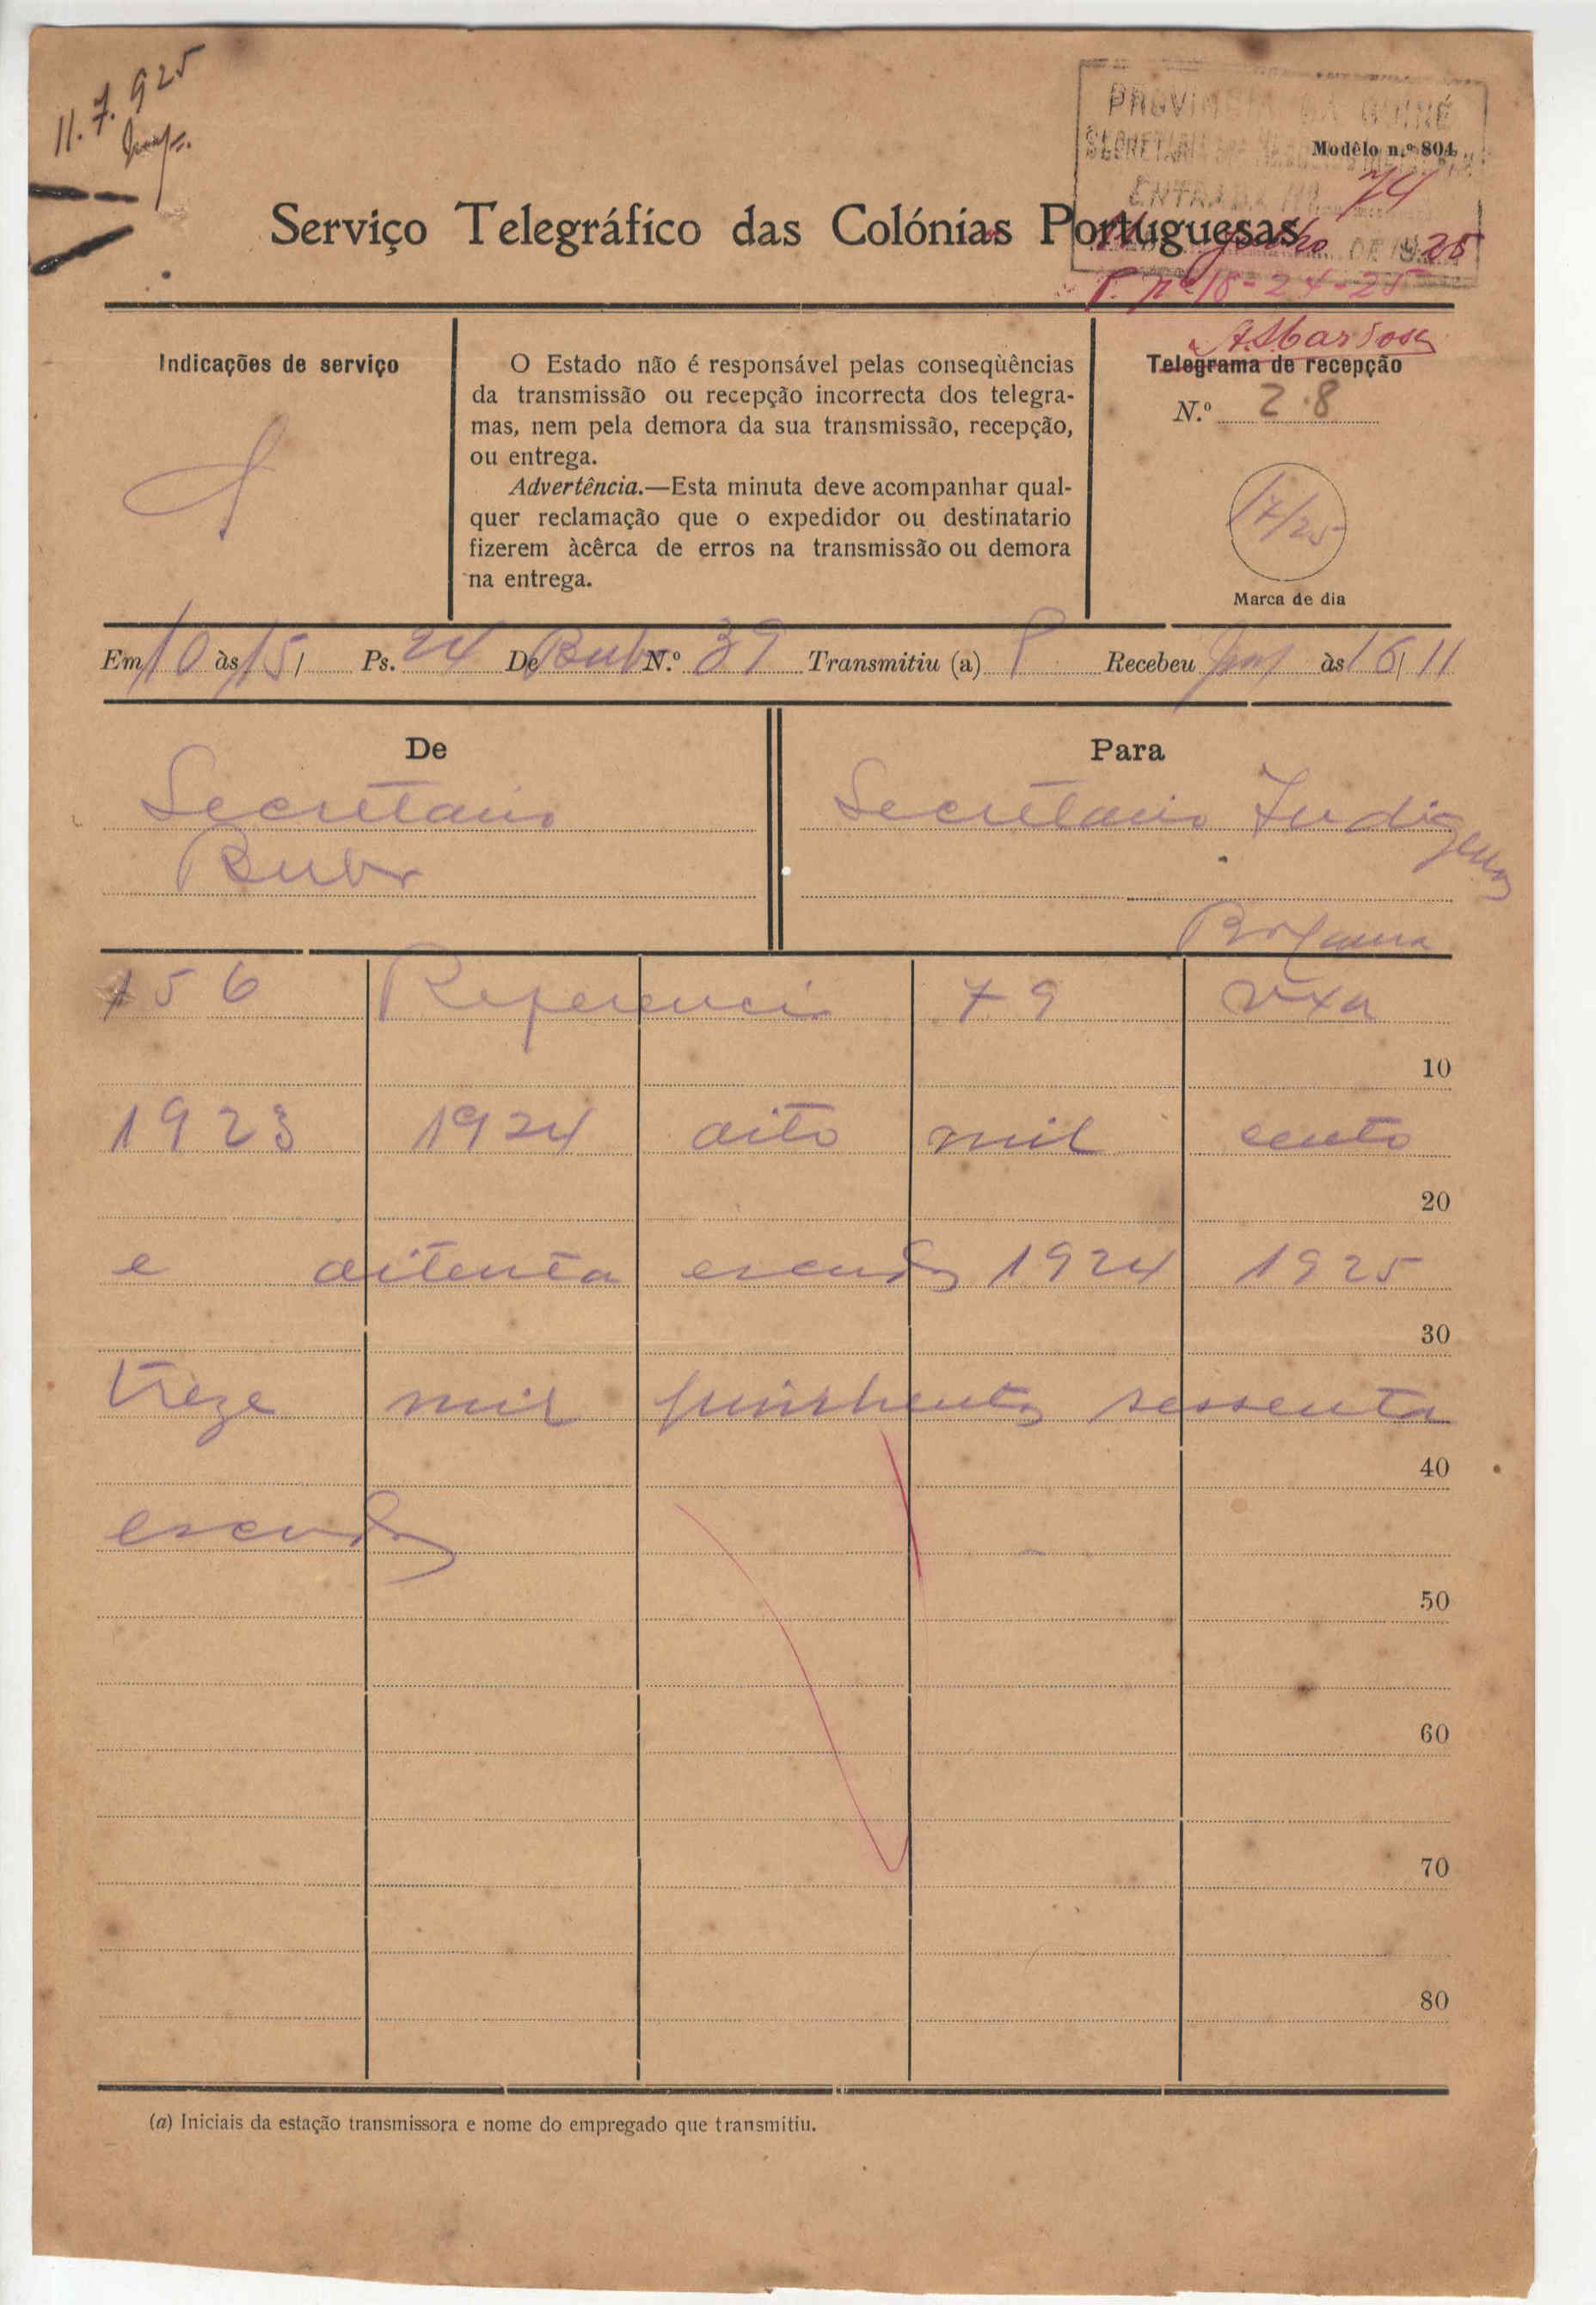 11.7.925
PROVINCIA DA GUINÉ
Modêlo n.º 804
ENTRADA Nº 74
Serviço Telegráfico das Colónias Portuguesas
Julho DE 1925
P. nº 18-24-25
Indicações de serviço
O Estado não é responsável pelas conseqùências
da transmissão ou recepção incorrecta dos telegra-
mas, nem pela demora da sua transmissão, recepção,
ou entrega.
Advertência.—Esta minuta deve acompanhar qual-
quer reclamação que o expedidor ou destinatario
fizerem àcêrca de erros na transmissão ou demora
na entrega.
Telegrama de recepção
N.º 28
/7/25
Marca de dia
Em 10 às 15/ Ps. 24 De Buba N.º 39 Transmitiu (a) P Recebeu às 16/11
De
Para
Secretario
Buba
Secretario Indigenas
Bolama
156 Referencia 79 vxa
10
1923 1924 oito mil cento
20
e oitenta escudos 1924 1925
30
treze mil quinhentos sessenta
40
escudos
50
60
70
80
(a) Iniciais da estação transmissora e nome do empregado que transmitiu.